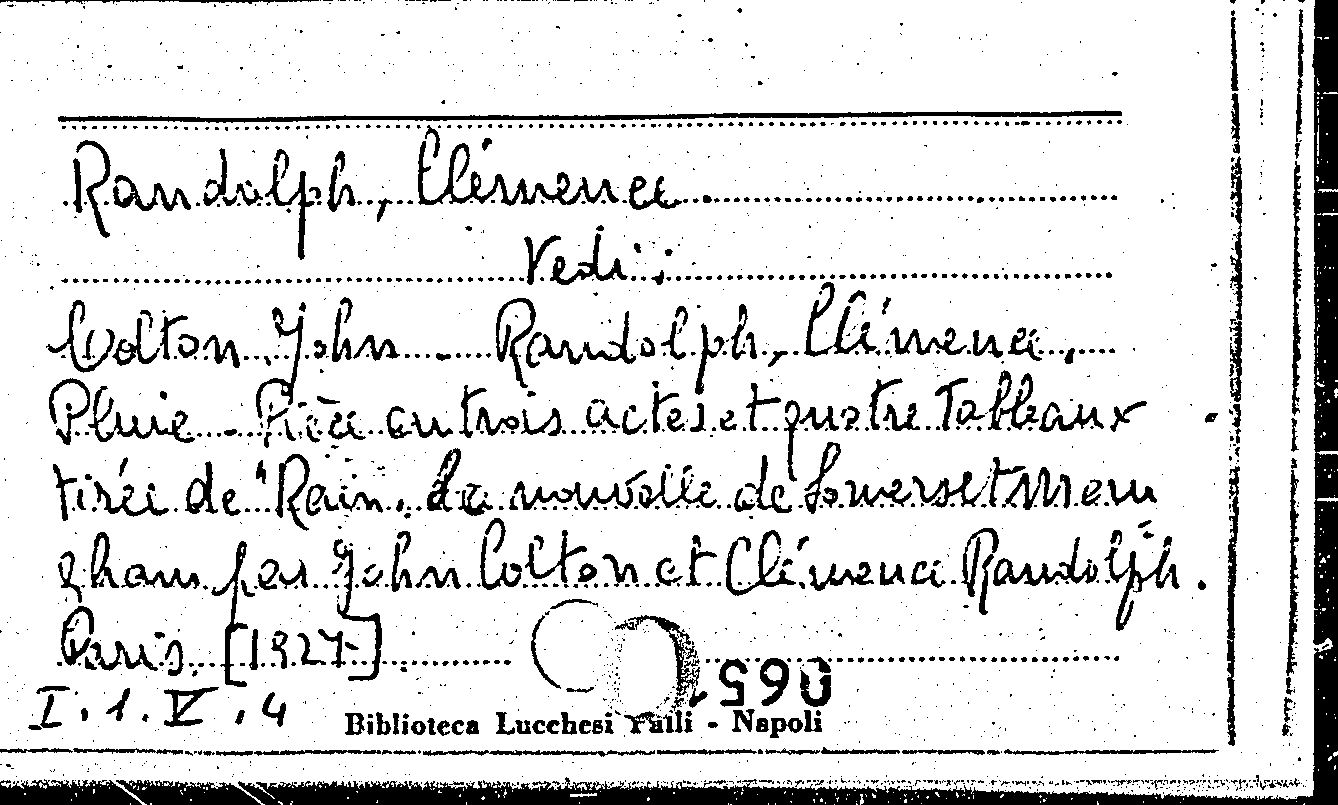 Randolph, Clémence.
Vedi:
Colton John - Randolph, Clémence.
Pluie - Pièce en trois actes et quatre Tableaux
tirée de "Rain. La nouvelle de Somerset Mau
gham par John Colton et Clémence Randolph.
Paris. [1927].
I. 1. V. 4
Biblioteca Lucchesi Palli - Napoli